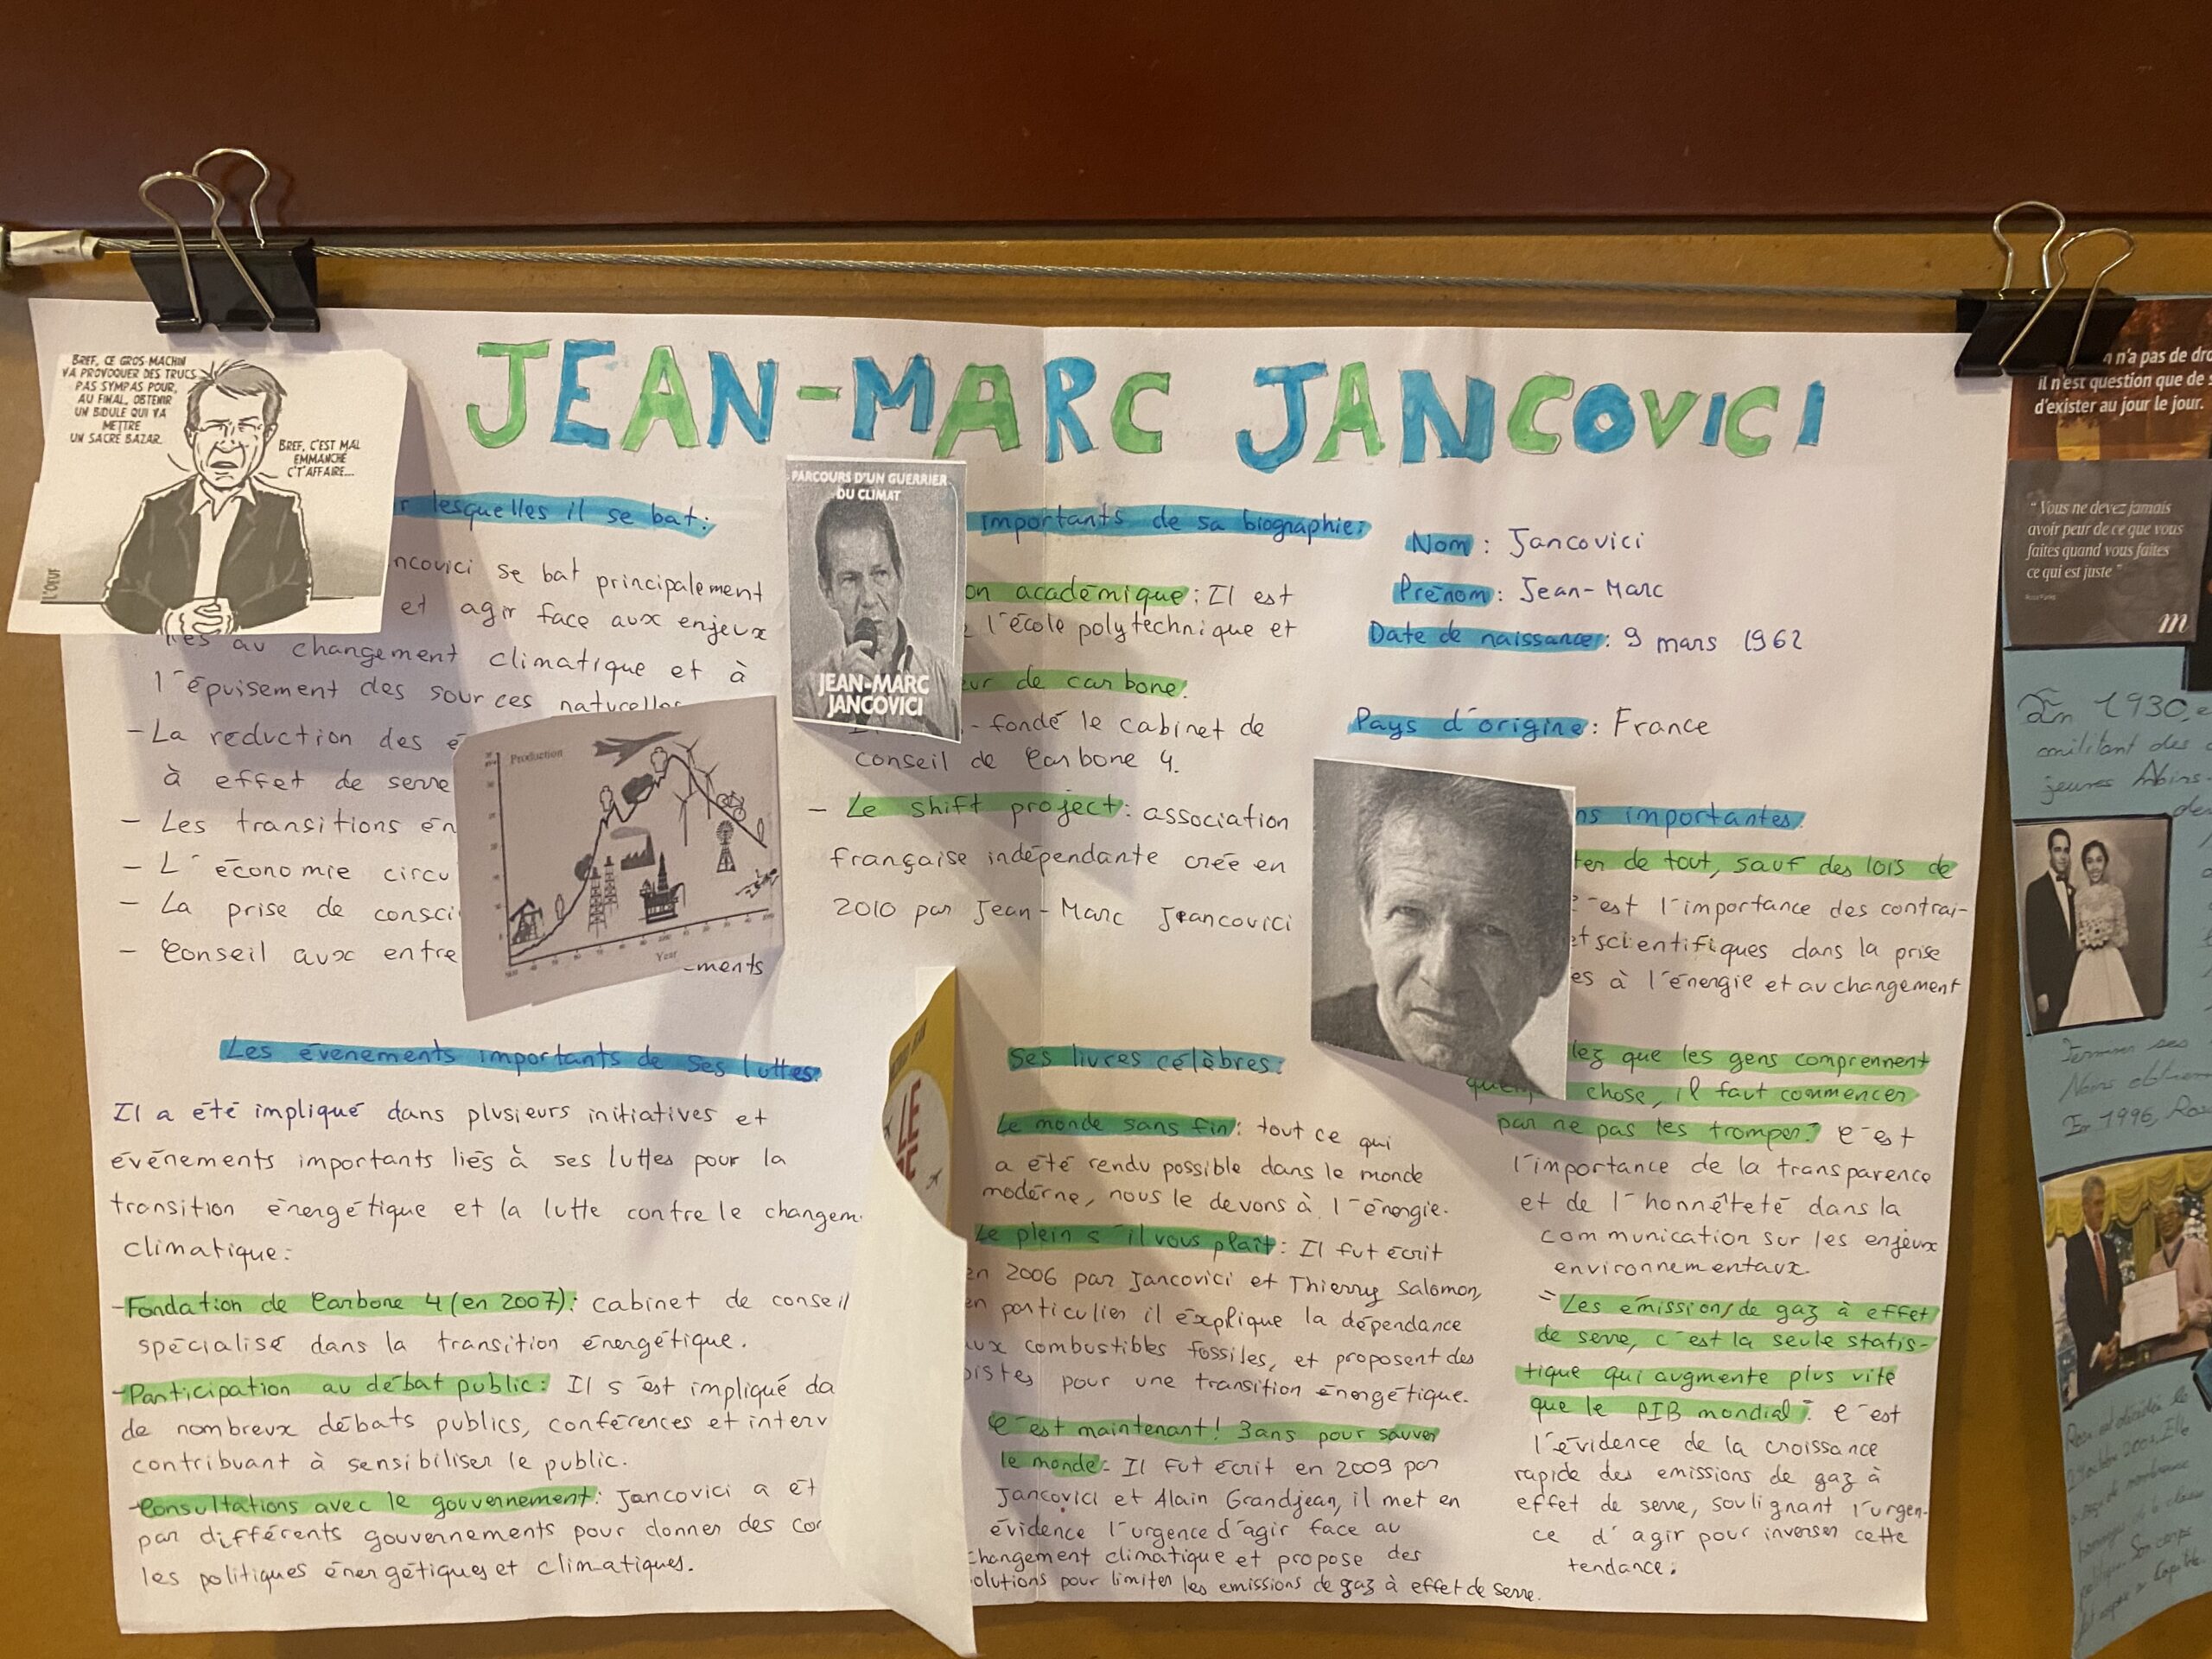 JEAN-MARC JANCOVICI
BREF, CE GROS MACHIN
VA PROVOQUER DES TRUCS
PAS SYMPAS POUR,
AU FINAL, OBTENIR
UN BIDULE QUI VA
METTRE
UN SACRÉ BAZAR.
BREF, C'EST MAL
EMMANCHÉ
C'T'AFFAIRE...
L'OEUF
lesquelles il se bat:
ncovici se bat principalement
et agir face aux enjeux
liés au changement climatique et à
l'épuisement des sources naturelles
- La reduction des é
à effet de serre
- Les transitions én
- L'économie circu
- La prise de consci
- Conseil aux entre
ements
Production
Year
Les évenements importants de ses luttes:
Il a été impliqué dans plusieurs initiatives et
événements importants liés à ses luttes pour la
transition énergétique et la lutte contre le changem
climatique:
-Fondation de Carbone 4 (en 2007): cabinet de conseil
spécialisé dans la transition énergétique.
-Participation au débat public: Il s'est impliqué da
de nombreux débats publics, conférences et interv
contribuant à sensibiliser le public.
-Consultations avec le gouvernement: Jancovici a ét
par différents gouvernements pour donner des con
les politiques énergétiques et climatiques.
PARCOURS D'UN GUERRIER
DU CLIMAT
JEAN-MARC
JANCOVICI
importants de sa biographie:
on académique: Il est
l'école polytechnique et
eur de carbone:
-fondé le cabinet de
conseil de Carbone 4.
- Le shift project: association
française indépendante créé en
2010 par Jean-Marc Jeancovici
LE
Ses livres célèbres:
Le monde sans fin: tout ce qui
a été rendu possible dans le monde
moderne, nous le devons à l'énergie.
Le plein s'il vous plaît: Il fut écrit
en 2006 par Jancovici et Thierry Salomon,
en particulier il éxplique la dépendance
aux combustibles fossiles, et proposent des
pistes pour une transition énergétique.
C'est maintenant! 3ans pour sauver
le monde: Il fut écrit en 2009 par
Jancovici et Alain Grandjean, il met en
évidence l'urgence d'agir face au
changement climatique et propose des
olutions pour limiter les emissions de gaz à effet de serre.
Nom: Jancovici
Prénom: Jean-Marc
Date de naissance: 9 mars 1962
Pays d'origine: France
ns importantes:
ter de tout, sauf des lois de
c'est l'importance des contrai-
et scientifiques dans la prise
es à l'énergie et au changement
lez que les gens comprennent
quelq chose, il faut commencer
par ne pas les tromper." C'est
l'importance de la transparence
et de l'honnêteté dans la
communication sur les enjeux
environnementaux.
"Les émissions de gaz à effet
de serre, c'est la seule statis-
tique qui augmente plus vite
que le PIB mondial". C'est
l'évidence de la croissance
rapide des emissions de gaz à
effet de serre, soulignant l'urgen-
ce d'agir pour inverser cette
tendance.
n n'a pas de dro
il n'est question que de s
d'exister au jour le jour.
"Vous ne devez jamais
avoir peur de ce que vous
faites quand vous faites
ce qui est juste"
Rosa Parks
m
En 1930, e
militant des
jeunes Noirs
de
Noirs
En 1996, Ros